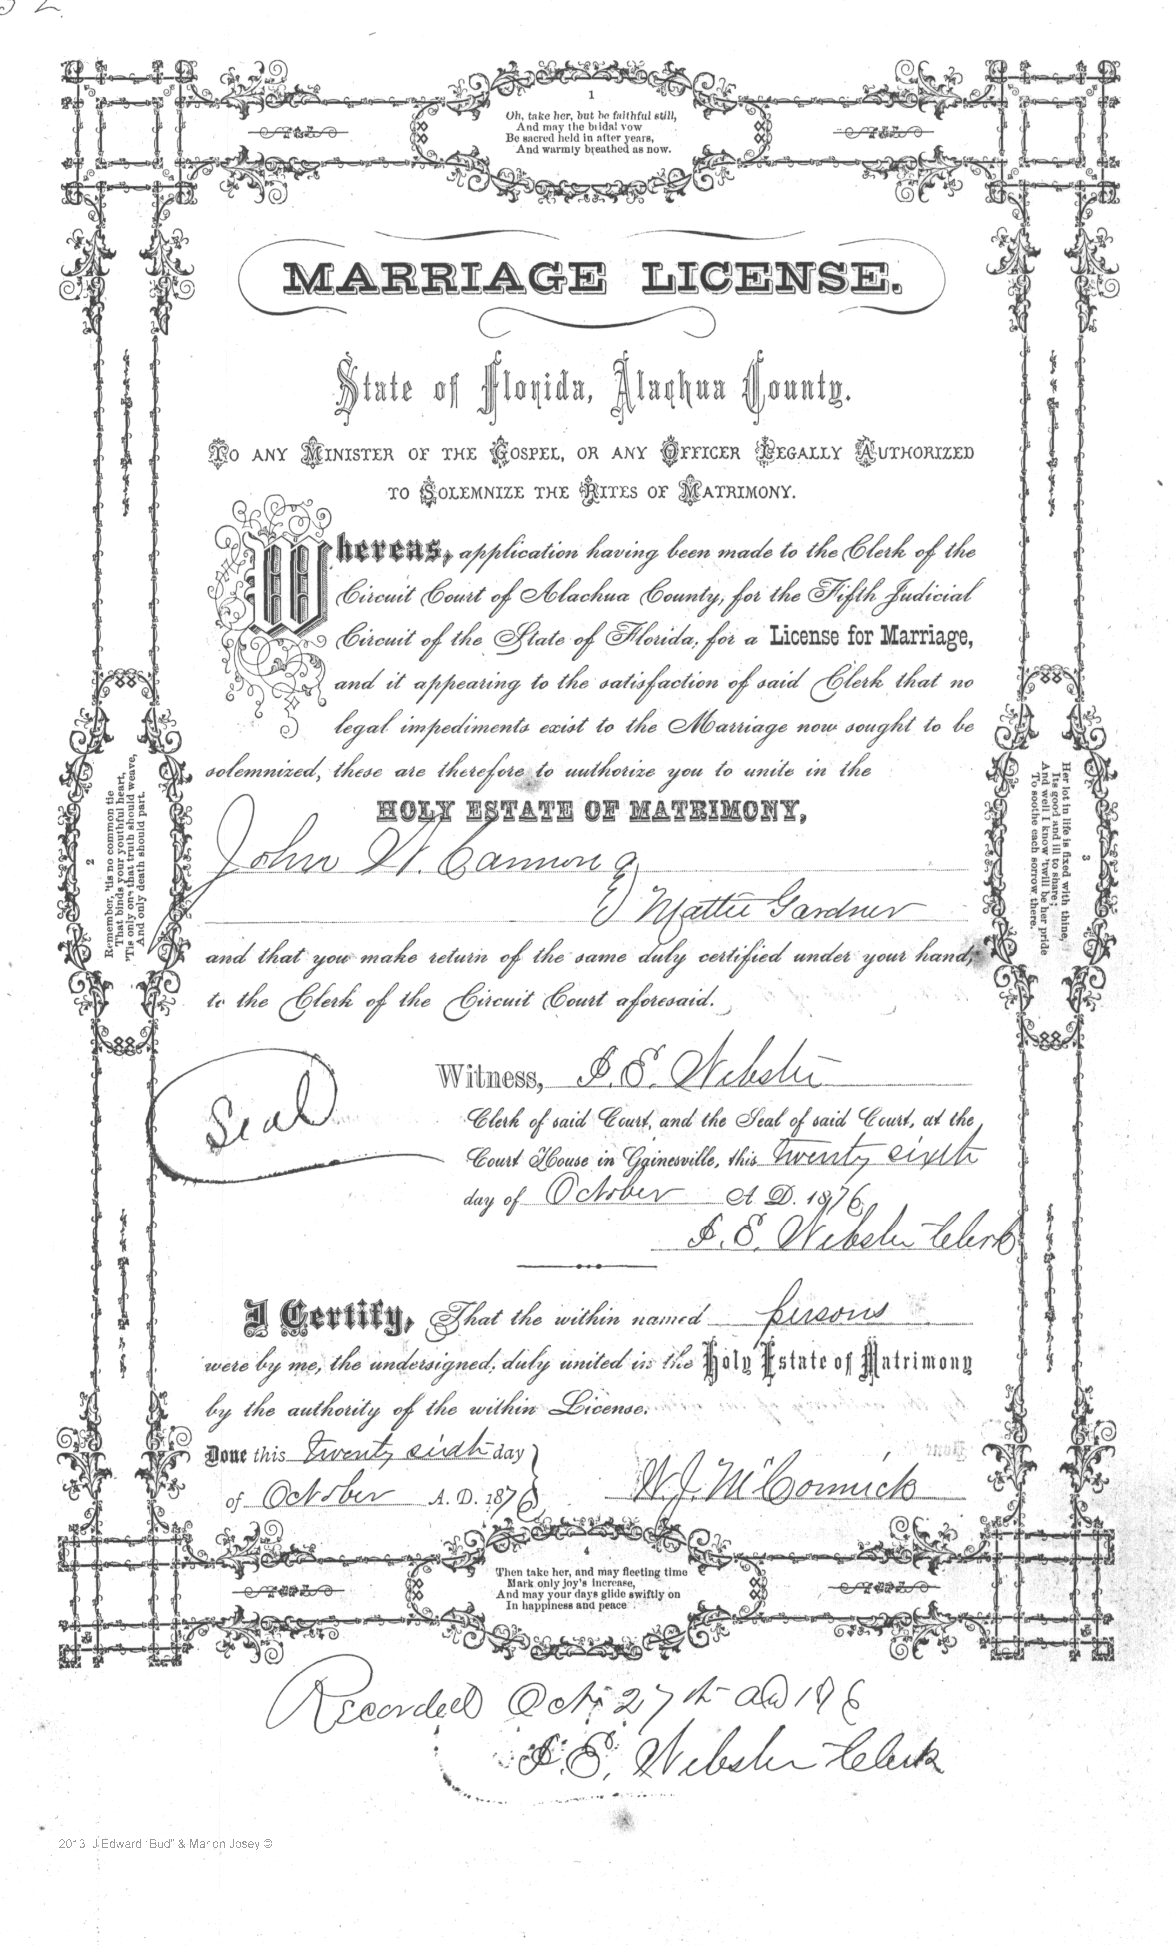 1
Oh, take her, but be faithful still,
And may the bridal vow
Be sacred held in after years,
And warmly breathed as now.
MARRIAGE LICENSE.
State of Florida, Alachua County.
TO ANY MINISTER OF THE GOSPEL, OR ANY OFFICER LEGALLY AUTHORIZED
TO SOLEMNIZE THE RITES OF MATRIMONY.
Whereas, application having been made to the Clerk of the
Circuit Court of Alachua County, for the Fifth Judicial
Circuit of the State of Florida, for a License for Marriage,
and it appearing to the satisfaction of said Clerk that no
legal impediments exist to the Marriage now sought to be
solemnized, these are therefore to authorize you to unite in the
HOLY ESTATE OF MATRIMONY,
John W. Cannon
& Mattie Gardner
and that you make return of the same duly certified under your hand,
to the Clerk of the Circuit Court aforesaid.
2
Remember, 'tis no common tie
That binds your youthful heart,
'Tis only one that truth should weave,
And only death should part.
3
Her lot in life is fixed with thine,
Its good and ill to share;
And well I know 'twill be her pride
To soothe each sorrow there.
Seal
Witness, J. E. Webster
Clerk of said Court, and the Seal of said Court, at the
Court House in Gainesville, this twenty sixth
day of October A D. 1876
J. E. Webster Clerk
I Certify, That the within named persons
were by me, the undersigned, duly united in the Holy Estate of Matrimony
by the authority of the within License.
Done this twenty sixth day
of October A. D. 1876
W. J. McCormick
4
Then take her, and may fleeting time
Mark only joy's increase,
And may your days glide swiftly on
In happiness and peace
Recorded Oct 27th AD 1876
J. E. Webster Clerk
2013 J Edward "Bud" & Marion Josey ©